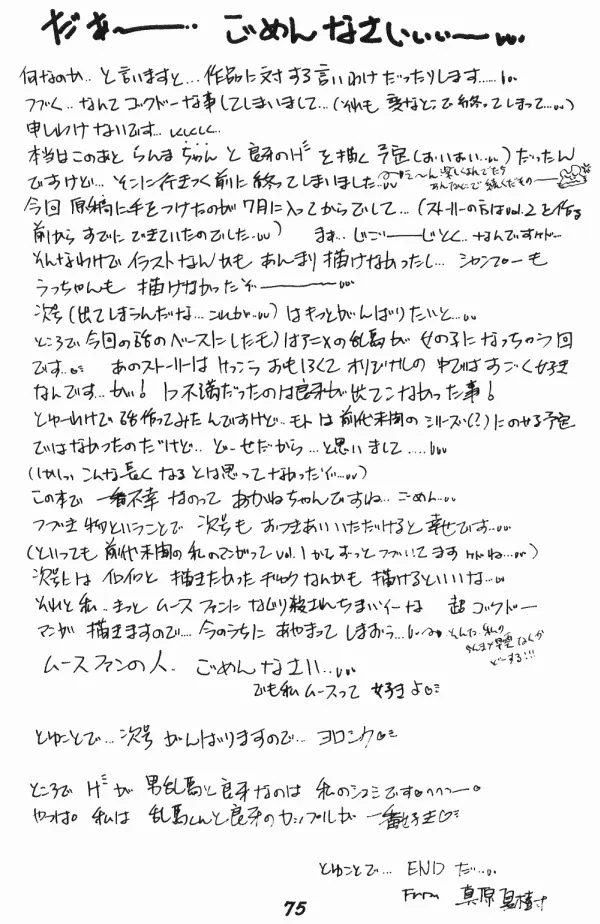 だぁ〜――‥ ごめんなさいぃぃ〜…
何なのか‥と言いますと…作品に対する言いわけだったりします……
つづく‥なんてゴクドーな事してしまいまして…(それも変なとこで終ってしまって…)
申しわけないです…
本当はこのあと らんまちゃんと良牙のHを描く予定(おいおい…)だったん
ですけど…そこに行きつく前に終ってしまいました…
今回原稿に手をつけたのが7月に入ってからでして…(ストーリーの方はvol.2を作る
前からすでにできていたのでした…) まぁ…じごーじとく‥なんですけど…
そんなわけでイラストなんかもあんまり描けなかったし… シャンプーも
うっちゃんも描けなかったぞ―――
次号(出てしまうんだな…これが…)はもっとがんばりたいと…
ところで今回の話のベースにしたモノはアニメの乱馬が女の子になっちゃう回
です… あのストーリーはけっこうおもしろくてオリジナルの中ではすごく好き
なんです…が! 1つ不満だったのは良牙が出てこなかった事!
とゆーわけで話作ってみたんですけど‥モトは前代未聞のシリーズ(?)にのせる予定
ではなかったのだけど‥どーせだから…と思いまして……
(しかしっこんな長くなるとは思ってなかったぞ…)
この本で一番不幸なのってあかねちゃんですね‥ごめん…
つづき物ということで次号もおつきあいいただけると幸せです…
(といっても前代未聞の私のまんがってvol.1からずっとつづいてますけどね…)
次号にはイロイロと描きたかったギャグなんかも描けるといいな…
それと私‥きっとムースファンになぐり殺されちまいそーな超ゴクドー
マンガ描きますので…今のうちにあやまってしまおう…
ムースファンの人‥ごめんなさい…
でも私ムースって好きよ♡
とゆことで…次号がんばりますので…ヨロシク♡
ところでHが男乱馬と良牙なのは私のシュミです
やっぱ私は乱馬くんと良牙のカップルが一番好き♡
とゆことで… ENDだ…
From 真原夏樹
75